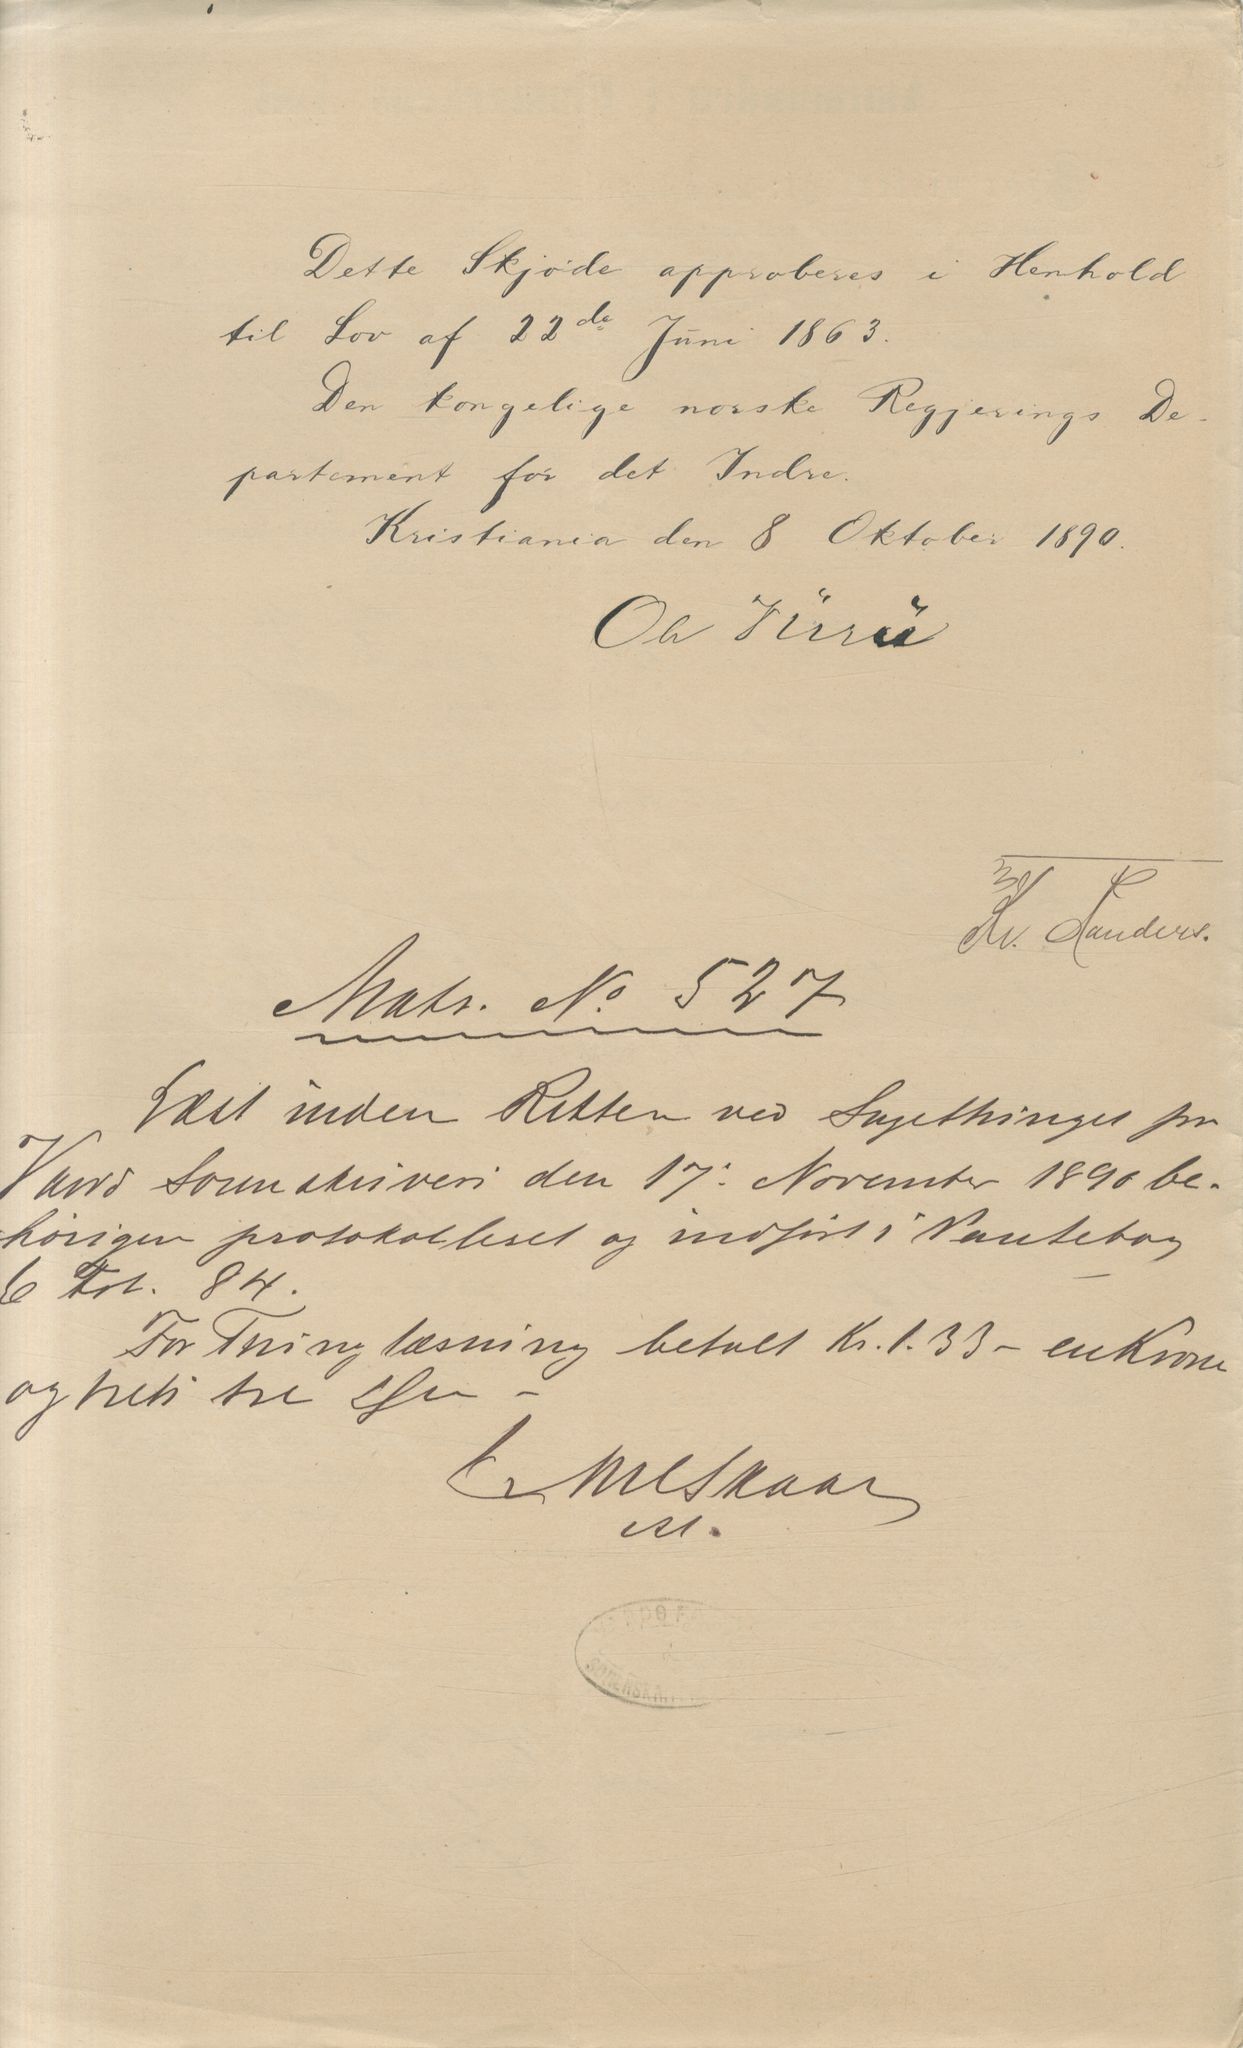 Dette Skjöde approberes i Henhold
til Lov af 22de Juni 1863.
Den kongelige norske Regjerings De-
partement for det Indre.
Kristiania den 8 Oktober 1890.
Ole Furu
Kr. Sanders.
Matr. No 527
Læst inden Retten ved Sagethinget for
Vardö Sorenskriveri den 17: November 1890 be-
hörigen protokolleret og indfört i Pantebog
6 Fol. 84.
For Thinglæsning betalt Kr. 1.33 – en Krone
og treti tre Öre –
Skaar